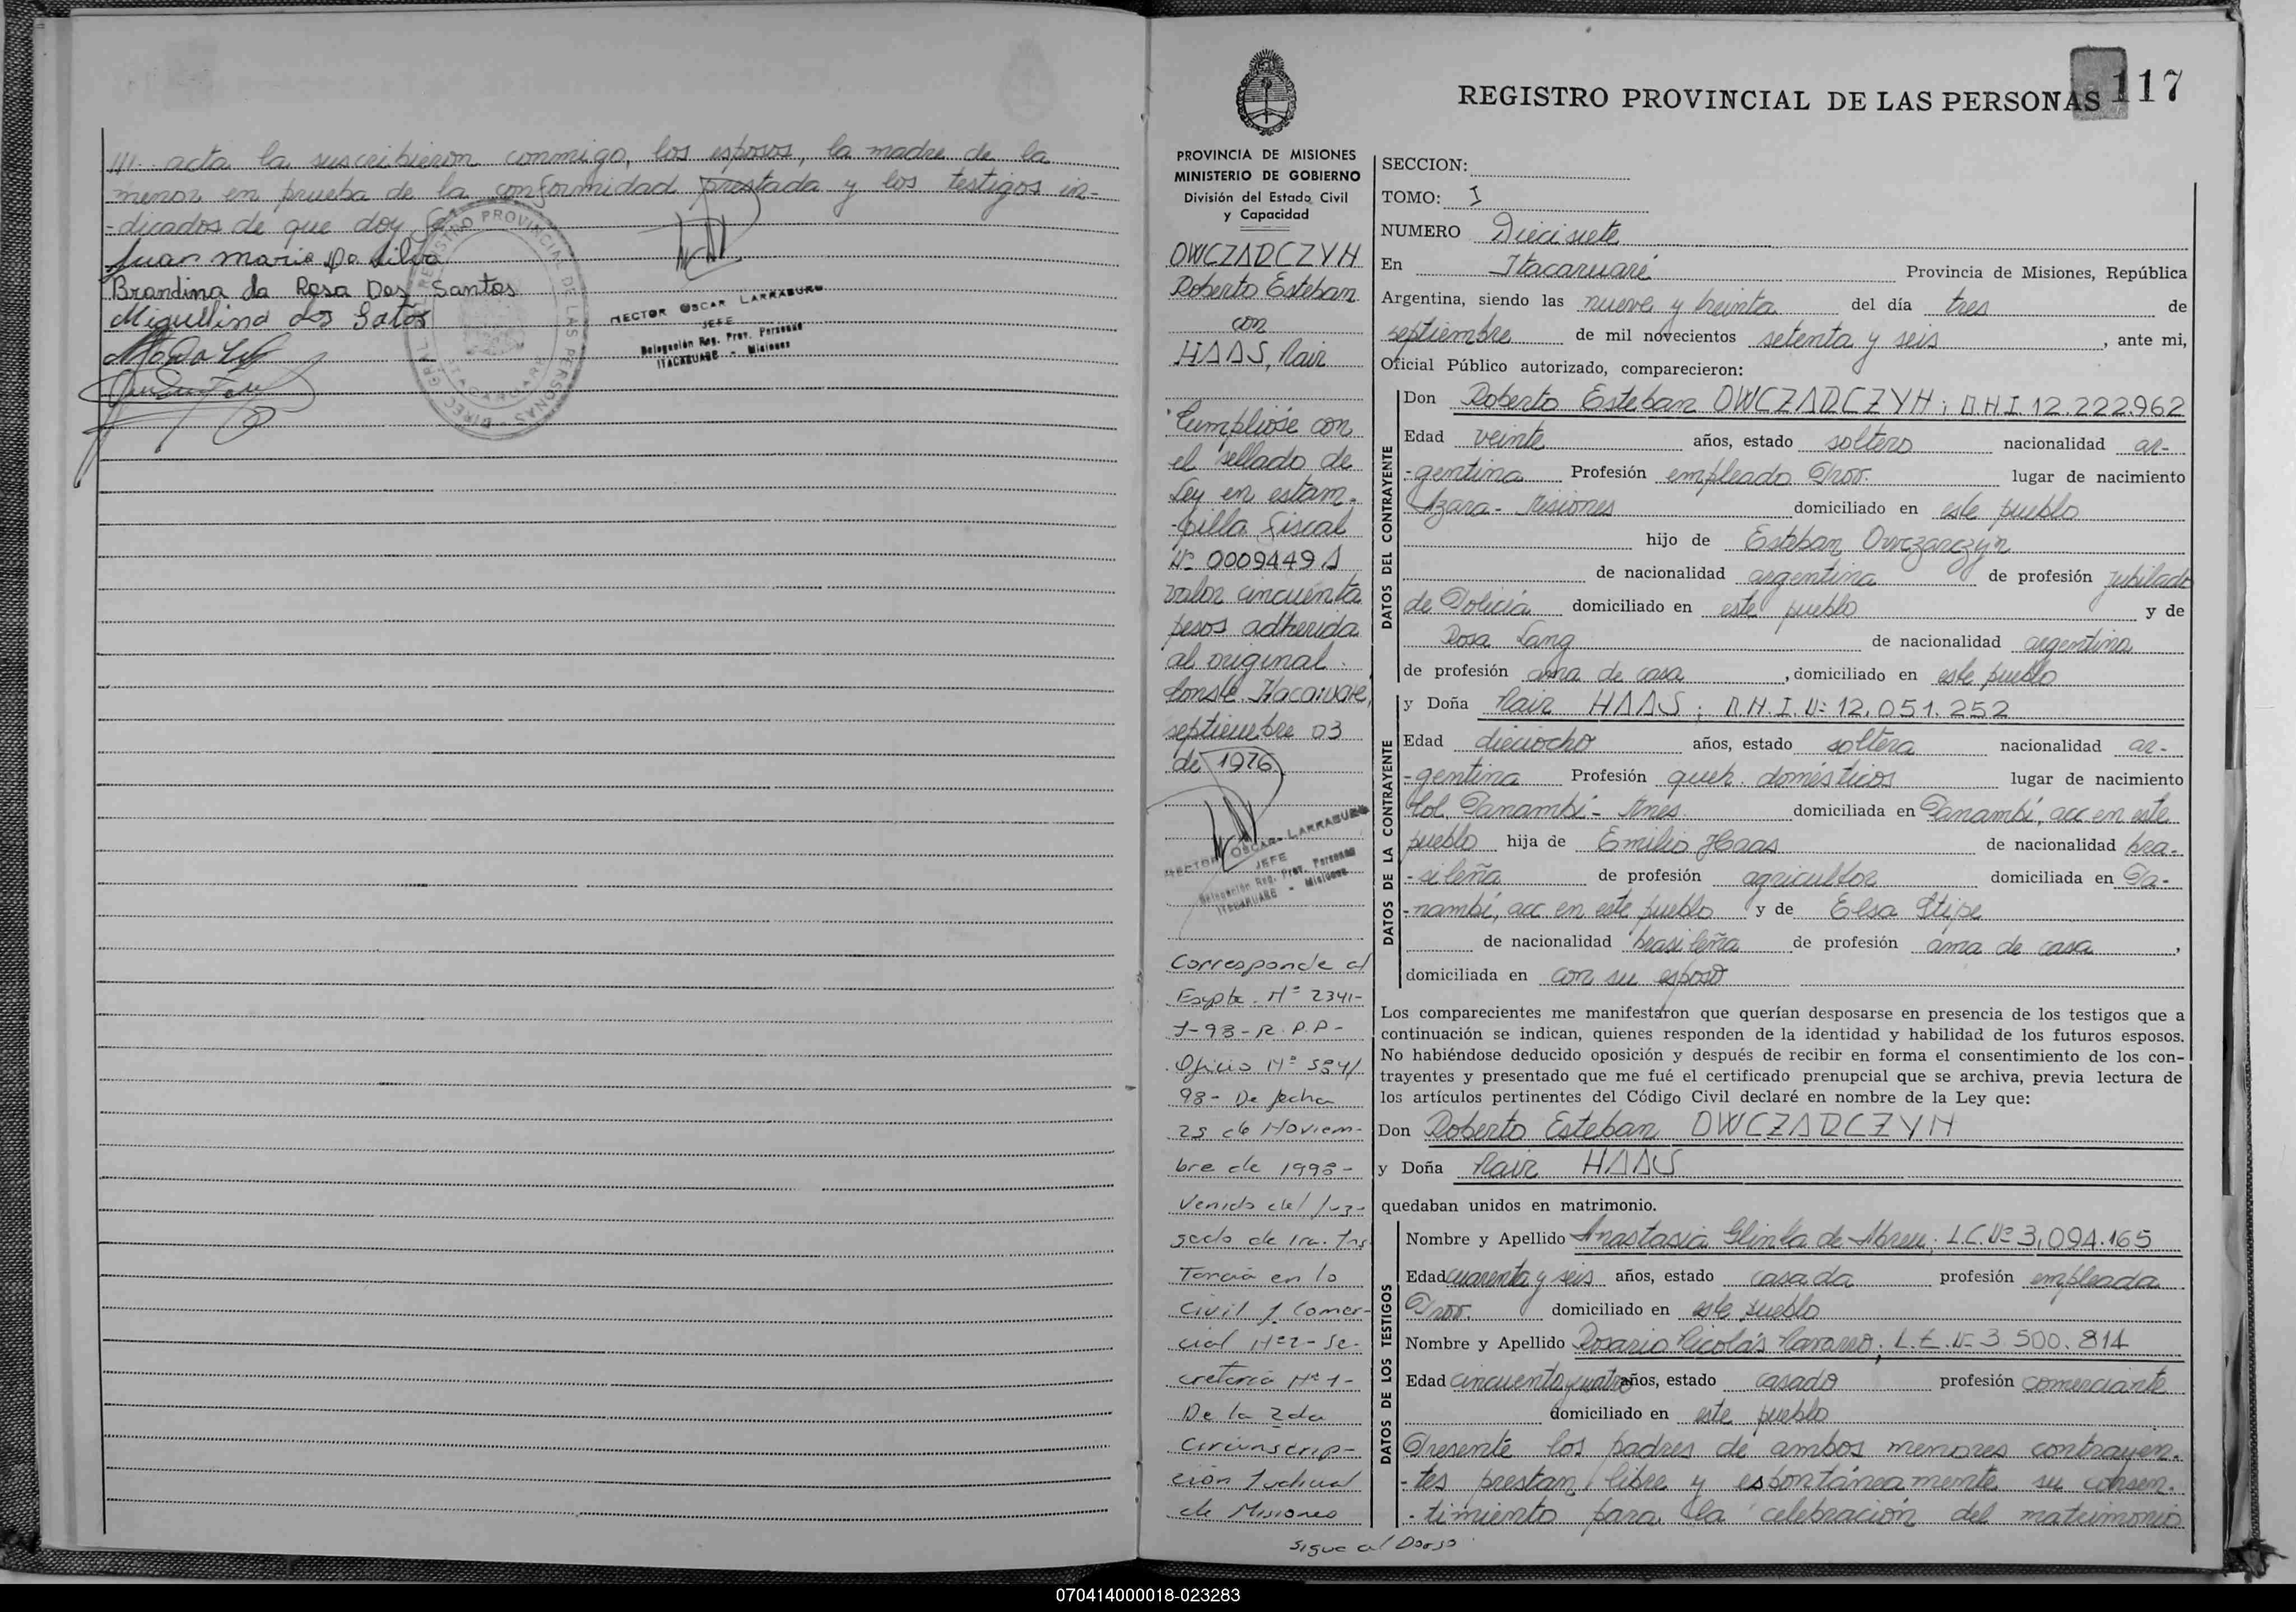 ///. acta la suscribieron conmigo, los esposos, la madre de la
menor en prueba de la conformidad prestada y los testigos in-
-dicados de que doy fe
Juan Maria Da Silva
Brandina da Rosa Dos Santos
Miguelina dos Satos
HECTOR OSCAR LARRABURU
JEFE
Delegación Reg. Prov. Personas
ITACARUARE - Misiones
117
REGISTRO PROVINCIAL DE LAS PERSONAS
PROVINCIA DE MISIONES
MINISTERIO DE GOBIERNO
División del Estado Civil
y Capacidad
OWCZARCZYN
Roberto Esteban
con
HAAS, Nair
Cumplióse con
el sellado de
Ley en estam-
-pilla fiscal
Nº 0009449 A
valor cincuenta
pesos adherida
al original.
Conste. Itacaruaré,
septiembre 03
de 1976
HECTOR OSCAR LARRABURU
JEFE
Delegación Reg. Prov. Personas
ITACARUARE - Misiones
Corresponde al
Expte. Nº 2341-
J-98-R.P.P-
Oficio Nº 584/
98- De fecha
25 de Noviem-
bre de 1998-
Venido del Juz-
gado de 1ra. Ins
Tancia en lo
Civil y Comer-
cial Nº2- Se-
cretaria Nº 1-
De la 2da
Circunscrip-
ción Judicial
de Misiones
Sigue al Dorso
SECCION:
TOMO: I
NUMERO Diecisiete
En Itacaruaré Provincia de Misiones, República
Argentina, siendo las nueve y treinta del día tres de
septiembre de mil novecientos setenta y seis, ante mi,
Oficial Público autorizado, comparecieron:
DATOS DEL CONTRAYENTE
Don Roberto Esteban OWCZARCZYN; D.N.I. 12.222.962
Edad veinte años, estado soltero nacionalidad ar-
-gentina Profesión empleado Prov. lugar de nacimiento
Azara - Misiones domiciliado en este pueblo
hijo de Esteban Owczarczyn
de nacionalidad argentina de profesión jubilado
de Policía domiciliado en este pueblo y de
Rosa Lang de nacionalidad argentina
de profesión ama de casa, domiciliado en este pueblo
DATOS DE LA CONTRAYENTE
y Doña Nair HAAS; D.N.I. Nº 12.051.252
Edad dieciocho años, estado soltera nacionalidad ar-
-gentina Profesión queh. domésticos lugar de nacimiento
Col. Panambí - Mnes. domiciliada en Panambí, acc. en este
pueblo hija de Emilio Haas de nacionalidad bra-
-sileña de profesión agricultor domiciliada en Pa-
-nambí, acc. en este pueblo y de Elsa Stipe
de nacionalidad brasileña de profesión ama de casa,
domiciliada en con su esposo
Los comparecientes me manifestaron que querían desposarse en presencia de los testigos que a
continuación se indican, quienes responden de la identidad y habilidad de los futuros esposos.
No habiéndose deducido oposición y después de recibir en forma el consentimiento de los con-
trayentes y presentado que me fué el certificado prenupcial que se archiva, previa lectura de
los artículos pertinentes del Código Civil declaré en nombre de la Ley que:
Don Roberto Esteban OWCZARCZYN
y Doña Nair HAAS
quedaban unidos en matrimonio.
DATOS DE LOS TESTIGOS
Nombre y Apellido Anastasia Glinka de Abreu; L.C. Nº 3.094.165
Edad cuarenta y seis años, estado casada profesión empleada
Prov. domiciliado en este pueblo
Nombre y Apellido Rosario Nicolás Navarro; L.E. Nº 3.500.814
Edad cincuenta y cuatro años, estado casado profesión comerciante
domiciliado en este pueblo
Presente los padres de ambos menores contrayen-
-tes prestan libre y espontáneamente su consen-
-timiento para la celebración del matrimonio
070414000018-023283